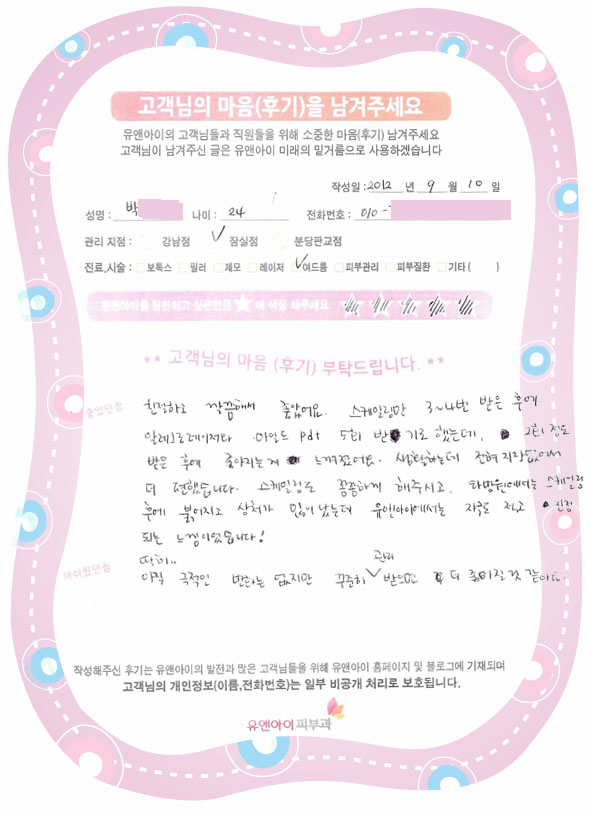 고객님의 마음(후기)을 남겨주세요
유앤아이의 고객님들과 직원들을 위해 소중한 마음(후기) 남겨주세요
고객님이 남겨주신 글은 유앤아이 미래의 밑거름으로 사용하겠습니다
작성일 : 2012 년 9 월 10 일
성명 : 박 나이 : 24 전화번호 : 010 -
관리 지점 : 강남점 잠실점 분당판교점
진료,시술 : 보톡스 필러 제모 레이저 여드름 피부관리 피부질환 기타 ( )
유앤아이를 칭찬하고 싶은만큼 ★ 에 색칠 해주세요.
** 고객님의 마음 (후기) 부탁드립니다. **
좋았던점
친절하고 깔끔해서 좋았어요. 스케일링만 3~4번 받은 후에
pdt 5회 받기로 했는데, 2회 정도
받은 후에 좋아지는게 느껴졌어요. 생활하는데 전혀 지장없어서
더 편했습니다. 스케일링도 꼼꼼하게 해주시고, 타병원에서는 스케일링
후에 붉어지고 상처가 많이 났는데 유앤아이에서는 자극도 적고 진정
되는 느낌이었습니다!
아쉬웠던점
딱히..
관리
아직 극적인 변화는 없지만 꾸준히 받으면 더 좋아질 것 같아요.
작성해주신 후기는 유앤아이의 발전과 많은 고객님들을 위해 유앤아이 홈페이지 및 블로그에 기재되며
고객님의 개인정보(이름,전화번호)는 일부 비공개 처리로 보호됩니다.
유앤아이 피부과